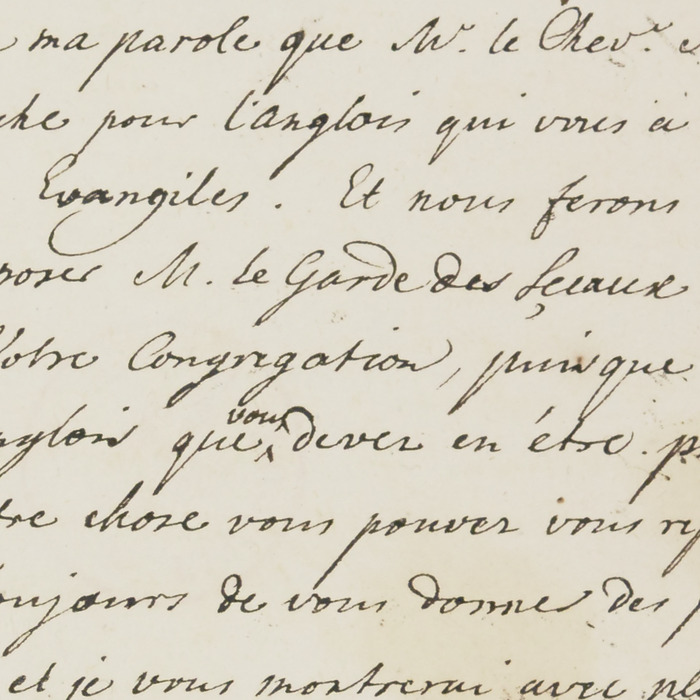 ma parole que Mr. le Chevr.
che pour l'anglois qui vous a
Evangiles. Et nous ferons
poser M. le Garde des sçeaux
Votre Congregation, puisque
nglois que vous devez en être.
tre chose vous pouvez vous
toujours de vous donner des
et je vous montrerai avec